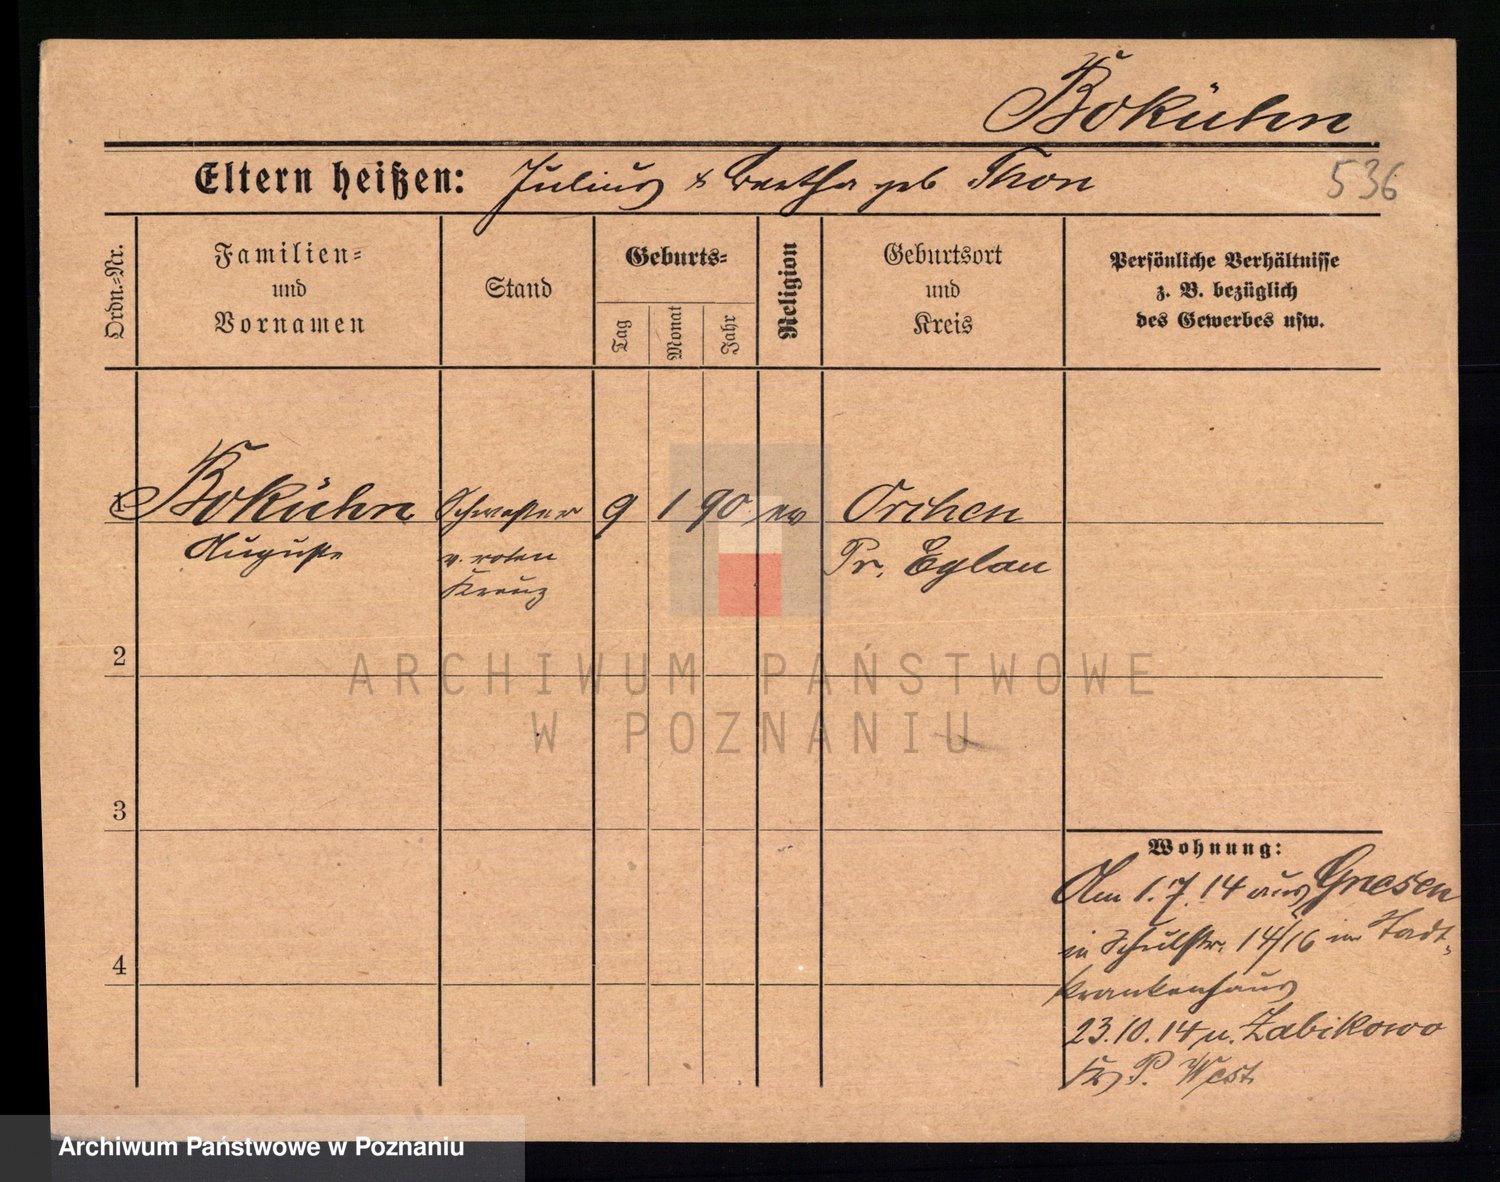 Bokühn
Eltern heißen: Julius & Bertha geb Thon
536
Ordn.-Nr.
Familien-
und
Vornamen
Stand
Geburts-
Tag
Monat
Jahr
Religion
Geburtsort
und
Kreis
Persönliche Verhältnisse
z. B. bezüglich
des Gewerbes usw.
1 Bokühn Schwester 9 1 90 ev Orchen
Auguste v. roten Pr. Eylau
Kreuz
2
ARCHIWUM PAŃSTWOWE
W POZNANIU
3
Wohnung:
Am 1.7.14 aus Gnesen
in Schulstr. 14/16 im Stadt-
4
krankenhaus
23.10.14 n. Zabikowo
Kr P. West
Archiwum Państwowe w Poznaniu